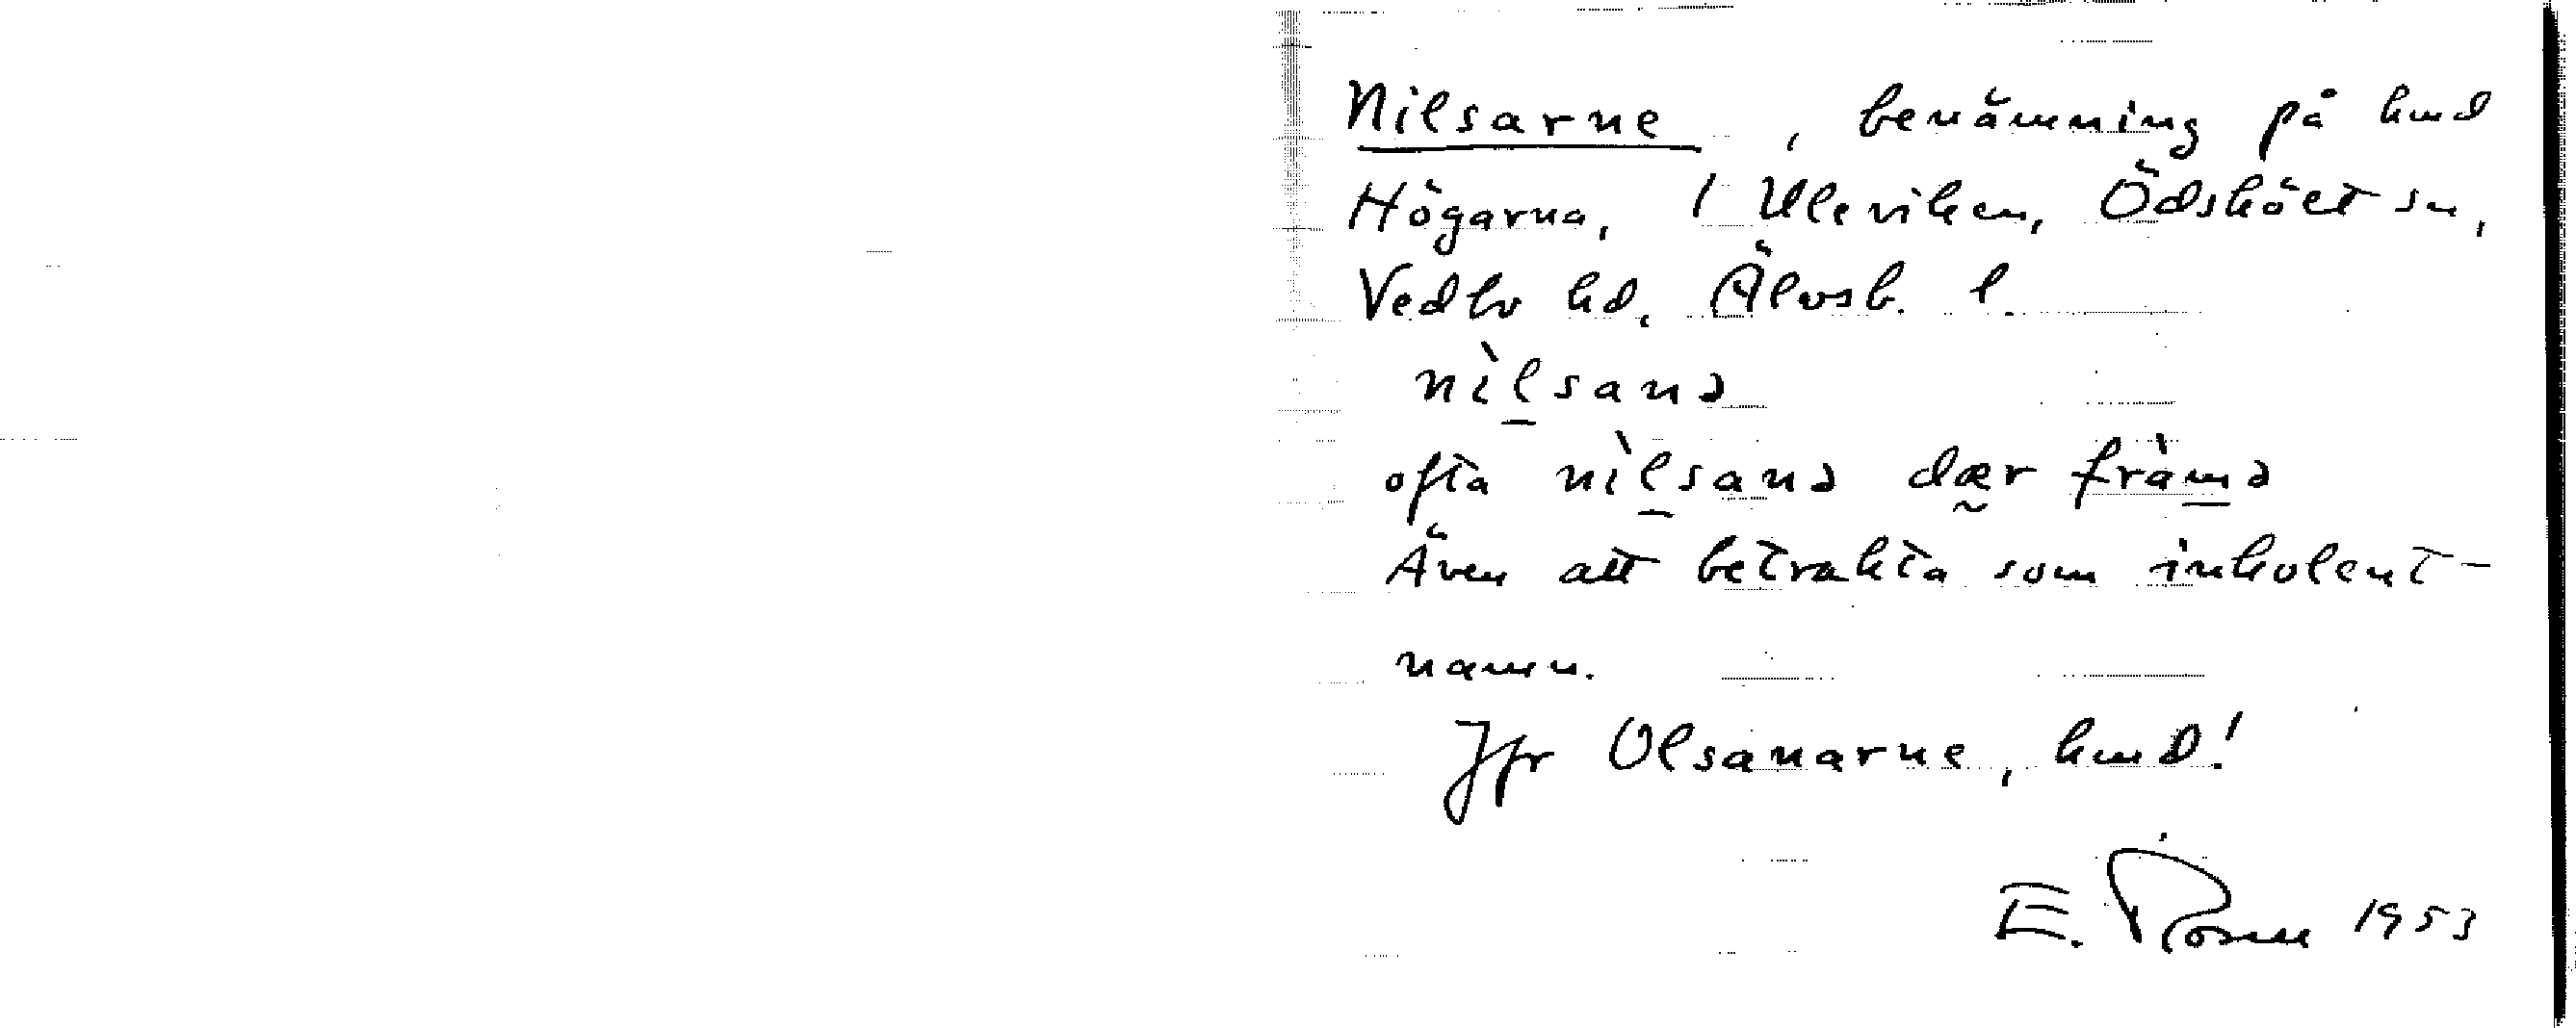 Nilsarne, benämning på hmd
Högarna, 1 Uleviken, Ödsköct sn,
Vedbo hd, Älvsb. l.
nìlsanə
ofta nìlsanə dær fràmə
Även att betrakta som inkolent-
namn.
Jfr Olsanarne, hmd!
E. Rosen 1953